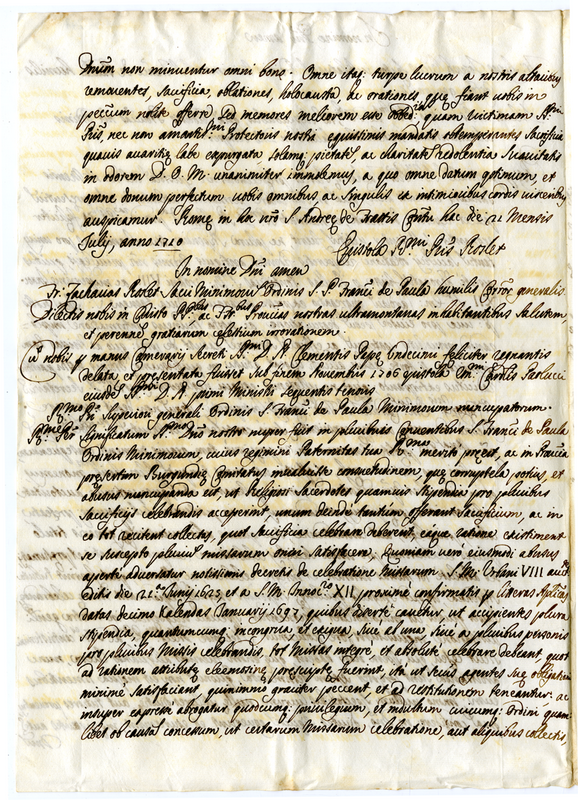 Dnum non minuentur omni bono. Omne itaq: turpe lucrum a nostris altaribus
removentes, sacrificia, oblationes, holocausta, ac orationes, quę fiant vobis in
nolite offerre, sed memores meliorem esse obedien quam victimam
nec non amantis. Protectoris nostri equissimis mandatis obtemperantes sacrificia
quavis avaritię labe expurgata solamq: pietatē, ac charitatē redolentia suavitatis
in odorem D. O. M. unanimiter immolemus, a quo omne datum optimum, et
omne donum perfectum vobis omnibus ac singulis ex intimioribus cordis visceribus
auspicamur. Romę in hoc nrō S. Andreę de Frattis Conventu hac die 21 Mensis
Julij, anno 1710
Epistola Rmi Pris Roslet
In nomine Dnī amen
Fr. Zacharias Roslet Sacri Minimorū Ordinis S. P. Franci de Paula humilis Corror generalis.
Dilectis nobis in Christo ac Fribus Provincias nostras ultramontanas inhabitantibus Salutem
et perennē gratiarum cęlestium irrorationem.
Cū nobis p manus Camerarij Secreti Smi D. N. Clementis Papę Undecimi feliciter regnantis
delata et pręsentata fuisset sub finem Novembris 1706 epistola Emi Cardlis Paolucci
eiusdē D. N. primi Ministri sequentis tenoris
Rmo Pri Superiori generali Ordinis S. Franci de Paula Minimorum nuncupatorum.
Rme Pr Significatum Smo Dno nostro nuper fuit in pluribus Conventibus S. Franci de Paula
Ordinis Minimorum, cuius regimini Paternitas tua Rma merito pręest, ac in Provincia
pręsertim Burgundię Comitatus invaluisse consuetudinem, quę corruptela potius, et
abusus nuncupanda est, ut Religiosi Sacerdotes quamvis stipendia pro pluribus
Sacrificijs celebrandis acceperint, unum deinde tantum offerant sacrificium, ac in
eo tot recitent collectas, quot sacrificia celebrare deberent, eaque ratione existiment
se suscepto pluriū missarum oneri satisfacere. Quoniam vero eiusmodi abusus
aperte adversatur notissimis decretis de celebratione Missarum S. M. Urbani VIII
editis die 21 Junij 1625 et a S. M. Innoc. XII proxime confirmatis p literas Aplicas
datas decimo Kalendas Januarij 1697, quibus diserte cavetur ut accipientes plura
stipendia, quantumcunq incongrua et exigua sive ab una sive a pluribus personis
pro pluribus Missis celebrandis, tot Missas integre, et absolute celebrare debeant, quot
ad rationem attributę eleemosinę pręscriptę fuerint, ita ut secus agentes suę obligationi
minime satisfaciant, quinimmo graviter peccent, et ad restitutionem teneantur: ac
insuper expresse abrogatur quodcumq: privilegium, et indultum cuicumq: Ordini quam
libet ob causā concessum, ut certarum Missarum celebratione, aut aliquibus collectis,